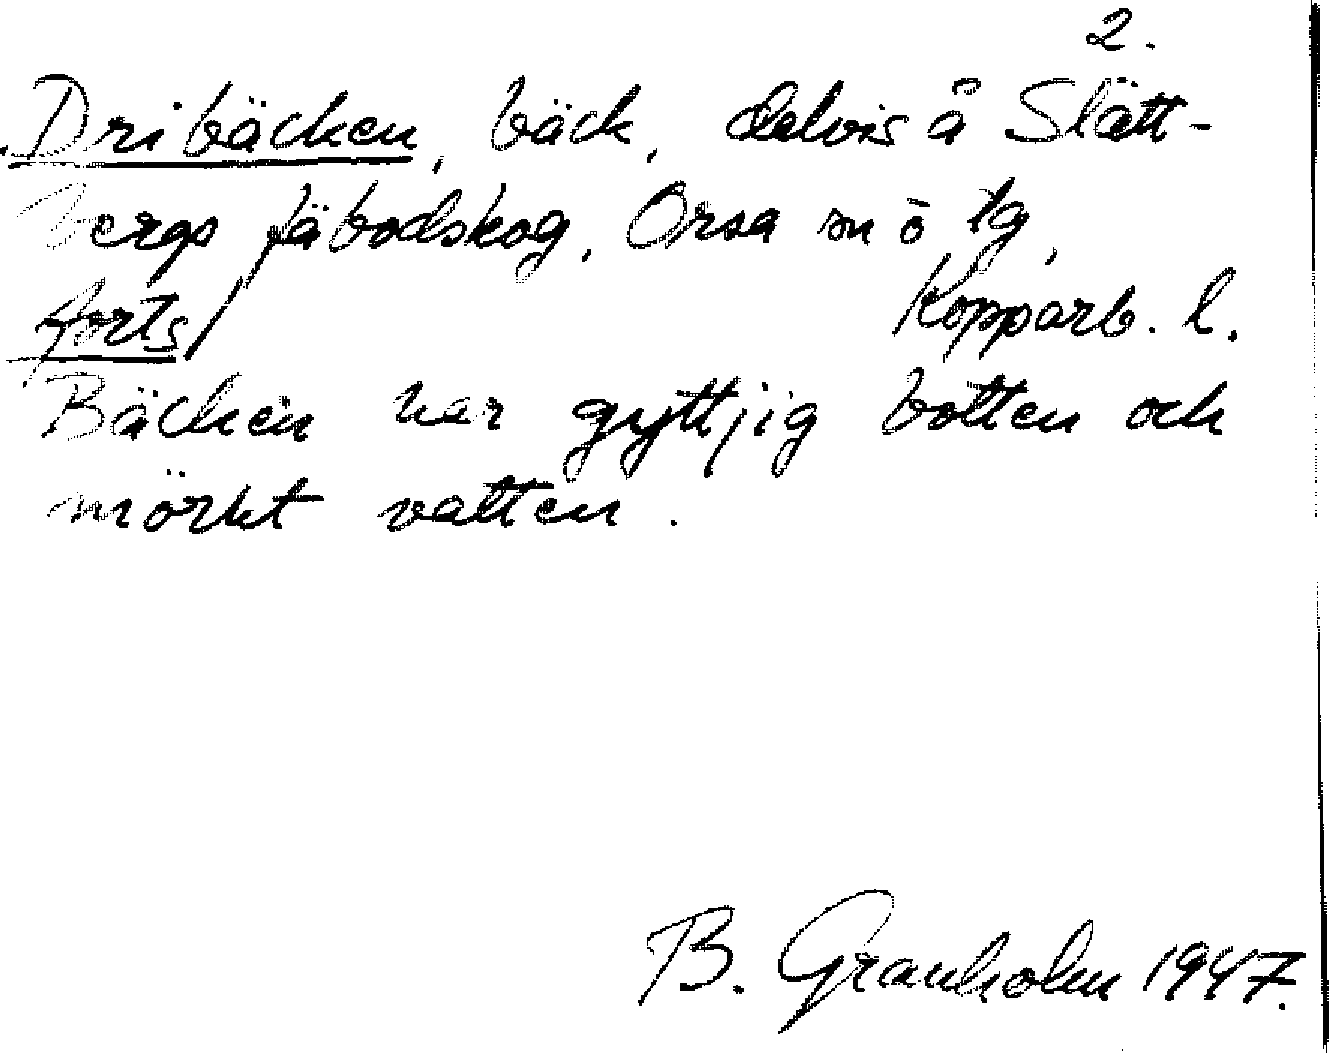 2.
Dribäcken, bäck, delvis å Slätt-
bergs fäbodskog, Orsa sn o tg,
forts/ Kopparb. l.
Bäcken har gyttjig botten och
mörkt vatten.
B. Granholm 1947.